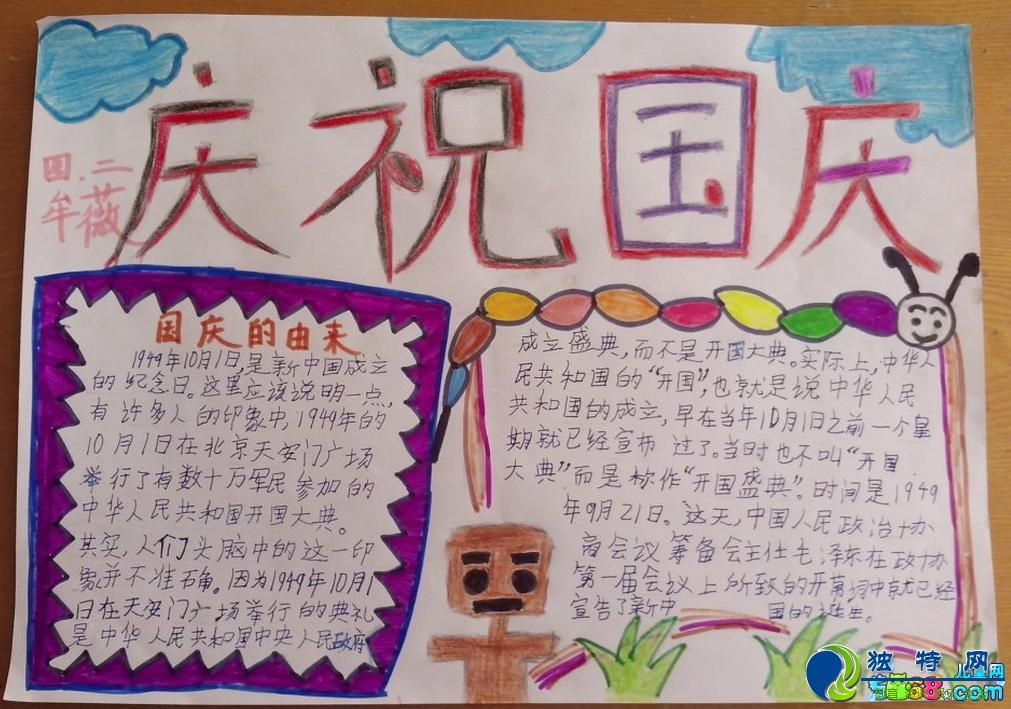 庆祝国庆
四.二
牟薇
国庆的由来
1949年10月1日,是新中国成立
的纪念日。这里应该说明一点,
有许多人的印象中,1949年的
10月1日在北京天安门广场
举行了有数十万军民参加的
中华人民共和国开国大典。
其实,人们头脑中的这一印
象并不准确。因为1949年10月1
日在天安门广场举行的典礼
是中华人民共和国中央人民政府
成立盛典,而不是开国大典。实际上,中华人
民共和国的“开国”,也就是说中华人民
共和国的成立,早在当年10月1日之前一个星
期就已经宣布过了。当时也不叫“开国
大典”而是称作“开国盛典”。时间是1949
年9月21日。这天,中国人民政治协
商会议筹备会主任毛泽东在政协
第一届会议上所致的开幕词中就已经
宣告了新中国的诞生。
独特网
儿童网
.com